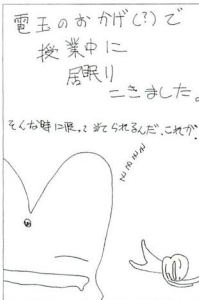 電王のおかげ(?)で
授業中に
居眠り
こきました。
そんな時に限って当てられるんだ、これが。
zzzzz